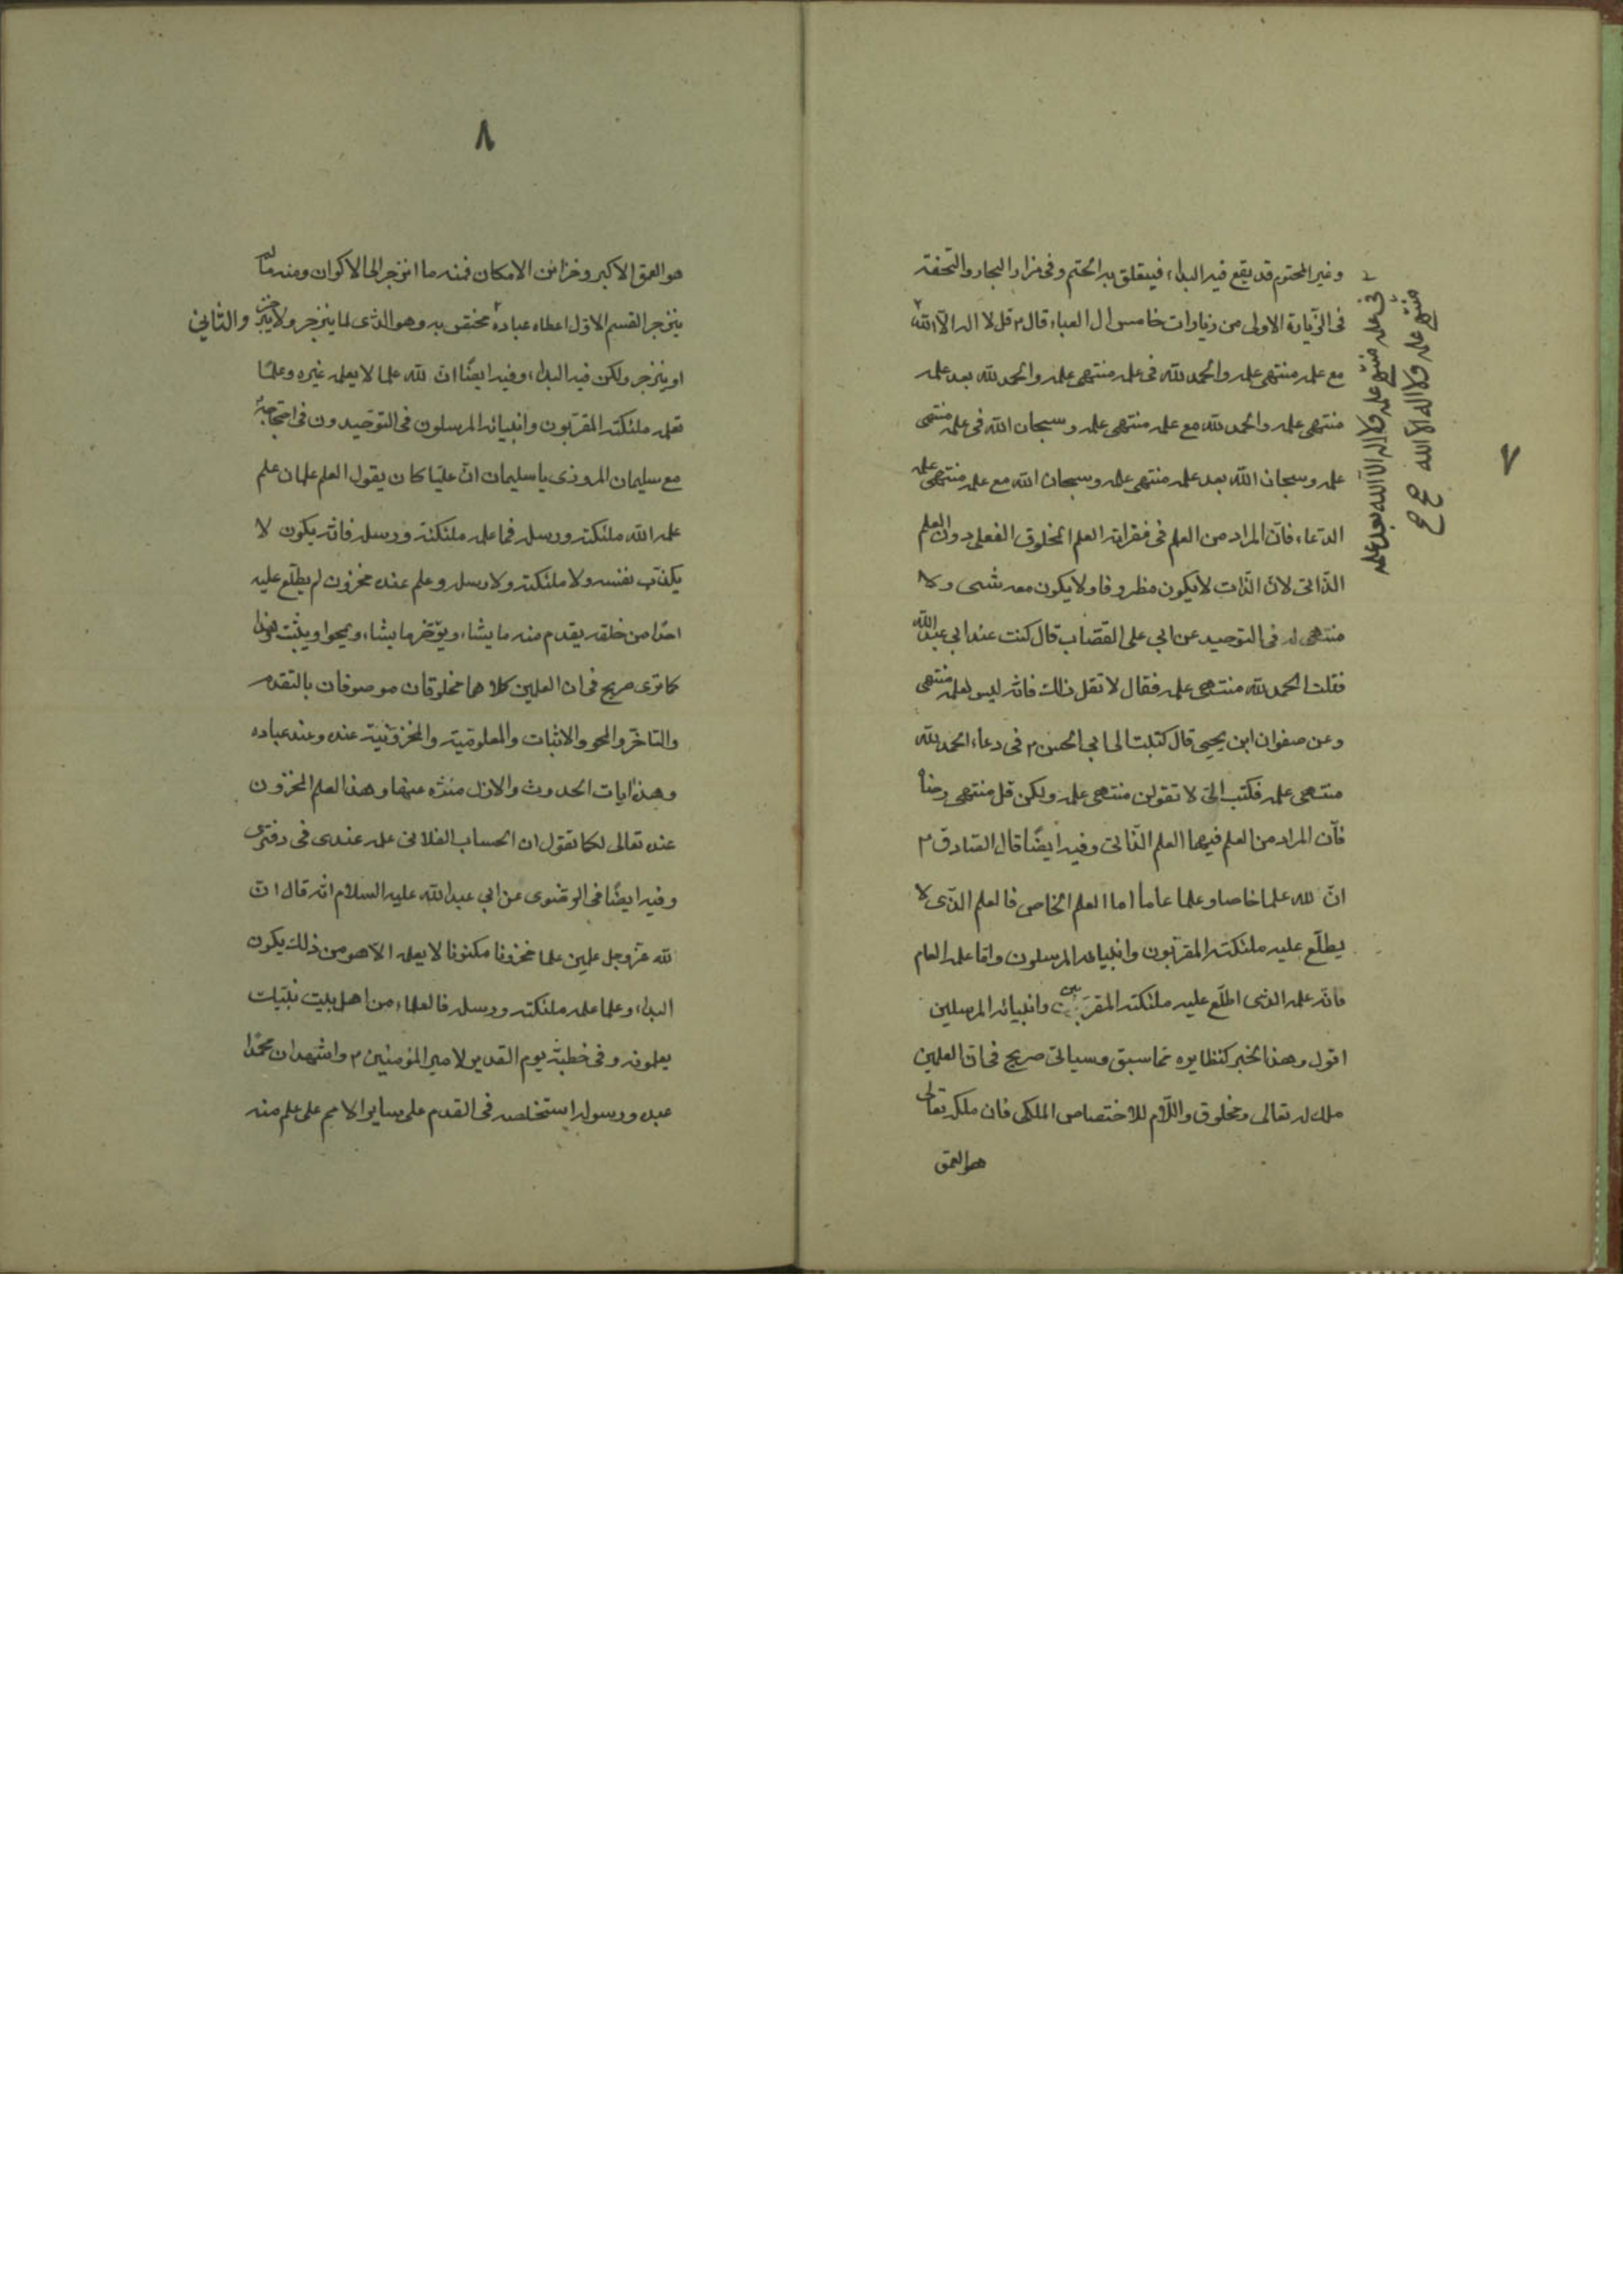 ٧
وغير المحتوم قد يقع فيه البداء فيتعلق به الحتم وفى مزار البحار والتحفة
فى الزيارة الاولى من زيارات خامس ال العباء قال ٢ قل لا اله الا الله
مع علمه منتهى علمه والحمد لله فى علمه منتهى علمه والحمد لله بعد علمه
منتهى علمه والحمد لله مع علمه منتهى علمه وسبحان الله فى علمه منتهى
علمه وسبحان الله بعد علمه منتهى علمه وسبحان الله مع علمه منتهى علمه
الدعاء فان المراد من العلم فى فقراته العلم المخلوق الفعلى دون العلم
الذاتى لان الذات لا يكون مظروفا ولا يكون معه شىء ولا
منتهى له فى التوحيد عن ابى على القصاب قال كنت عند ابى عبد الله
فقلت الحمد لله منتهى علمه فقال لا تقل ذلك فانه ليس لعلمه منتهى
وعن صفوان ابن يحيى قال كتبت الى ابى الحسن ٢ فى دعاء الحمد لله
منتهى علمه فكتب الى لا تقولن منتهى علمه ولكن قل منتهى رضاه
فان المراد من العلم فيهما العلم الذاتى وفيه ايضا قال الصادق ٢
ان لله علما خاصا وعلما عاما اما العلم الخاص فالعلم الذى لا
يطلع عليه ملئكته المقربون وانبيائه المرسلون واما علمه العام
فانه علمه الذى اطلع عليه ملئكته المقربين وانبيائه المرسلين
اقول وهذا الخبر كنظايره مما سبق وسياتى صريح فى ان العلمين
ملك له تعالى ومخلوق واللام للاختصاص الملكى فان ملكه تعالى
هو العمق
فى علمه منتهى علمه ولا اله الا الله بعد علمه
منتهى علمه ولا اله الا الله
٨
هو العمق الاكبر وخزائن الامكان فمنه ما انزجر الى الاكوان ومنه ما لم
ينزجر القسم الاول اعطاه عباده مختص به وهو الذى لما ينزجر ولا ينزجر والثانى
او ينزجر ولكن فيه البداء وفيه ايضا ان لله علما لا يعلمه غيره وعلما
تعلمه ملئكته المقربون وانبيائه المرسلون فى التوحيد ون فى احتجاجه
مع سليمان المروزى يا سليمان ان عليا كان يقول العلم علمان علم
علمه الله ملئكته ورسله فما علمه ملئكته ورسله فانه يكون لا
يكذب نفسه ولا ملئكته ولا رسله وعلم عنده مخزون لم يطلع عليه
احدا من خلقه يقدم منه ما يشاء ويؤخر ما يشاء ويمحو او يثبت وهذا
كما ترى صريح فى ان العلمين كلاهما مخلوقان موصوفان بالتقدم
والتاخر والمحو والاثبات والمعلومية والمخزونية عنده وعند عباده
وهذه ايات الحدوث والازل منزه عنها وهذا العلم المخزون
عنده تعالى كما تقول ان الحساب الفلانى علمه عندى فى دفترى
وفيه ايضا فى الوضوى عن ابى عبد الله عليه السلام انه قال ان
لله عز وجل علمين علما مخزونا مكنونا لا يعلمه الا هو من ذلك يكون
البداء وعلما علمه ملئكته ورسله فالعلماء من اهل بيت نبيك
يعلمونه وفى خطبة يوم الغدير لامير المؤمنين ٢ واشهد ان محمدا
عبده ورسوله استخلصه فى القدم على ساير الامم على علم منه